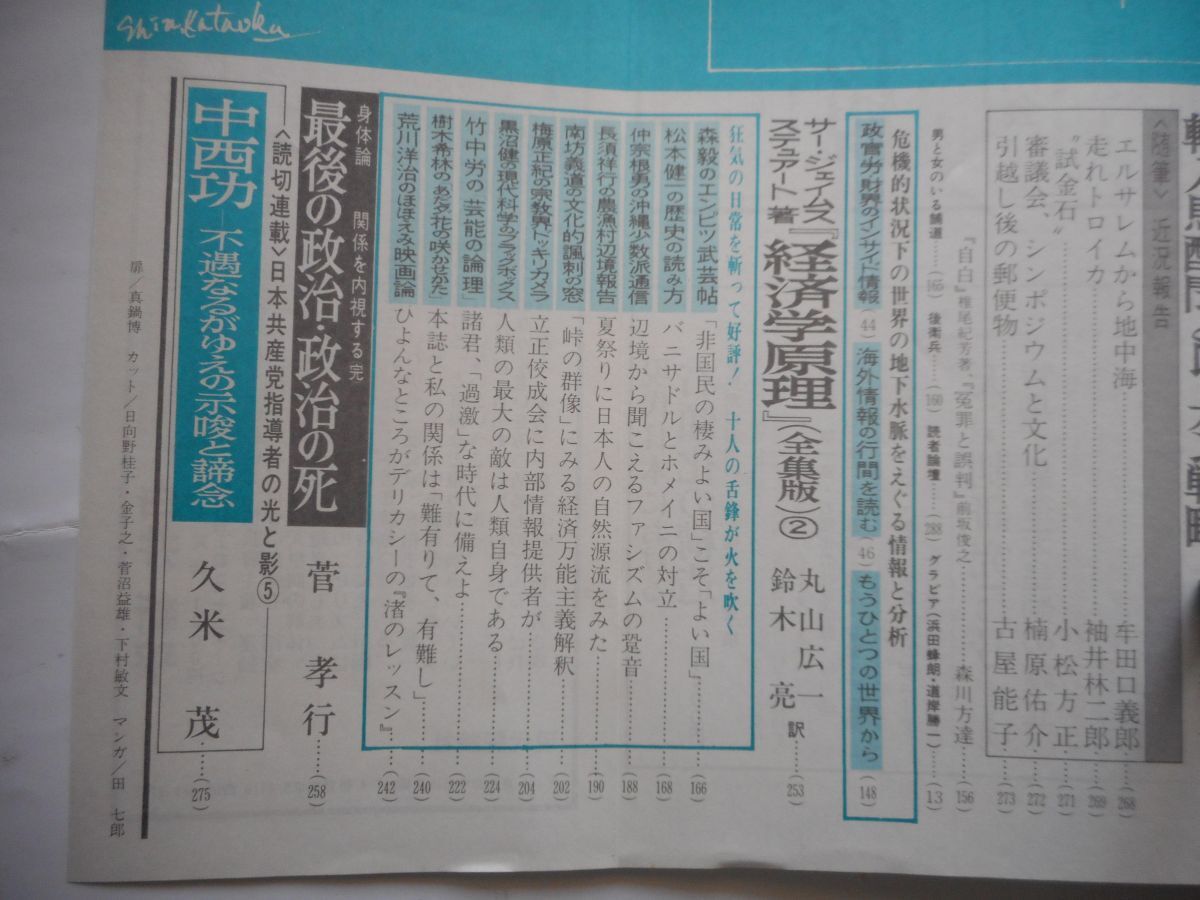 Shin.Kataoka
〈随筆〉 近況報告
エルサレムから地中海……牟田口義郎……(268)
走れトロイカ……袖井林二郎……(269)
〝試金石〟……小松方正……(271)
審議会、シンポジウムと文化……楠原佑介……(272)
引越し後の郵便物……古屋能子……(273)
『自白』椎尾紀芳著、『冤罪と誤判』前坂俊之……森川方達……(156)
男と女のいる舗道……(165) 後衛兵……(160) 読者論壇……(288) グラビア(浜田蜂朗・道岸勝一)……(13)
危機的状況下の世界の地下水脈をえぐる情報と分析
政官労財界のインサイト情報(44) 海外情報の行間を読む(46) もうひとつの世界から(148)
サー・ジェイムズ・ステュアート著『経済学原理』(全集版)② 丸山広一 鈴木亮 訳……(253)
狂気の日常を斬って好評! 十人の舌鋒が火を吹く
森毅のエンピツ武芸帖 「非国民の棲みよい国」こそ「よい国」……(166)
松本健一の歴史の読み方 バニサドルとホメイニの対立……(168)
仲宗根勇の沖縄少数派通信 辺境から聞こえるファシズムの跫音……(188)
長須祥行の農漁村辺境報告 夏祭りに日本人の自然源流をみた……(190)
南坊義道の文化的諷刺の窓 「峠の群像」にみる経済万能主義解釈……(202)
梅原正紀の宗教界ドッキリカメラ 立正佼成会に内部情報提供者が……(204)
黒沼健の現代科学のブラックボックス 人類の最大の敵は人類自身である……(224)
竹中労の「芸能の論理」 諸君、「過激」な時代に備えよ……(222)
樹木希林の〝あだ花の咲かせかた〟 本誌と私の関係は「難有りて、有難し」……(240)
荒川洋治のほほえみ映画論 ひょんなところがデリカシーの『渚のレッスン』……(242)
身体論 関係を内視する 完
最後の政治・政治の死 菅孝行……(258)
〈読切連載〉日本共産党指導者の光と影⑤
中西功—不遇なるがゆえの示唆と諦念 久米茂……(275)
扉/真鍋博 カット/日向野桂子・金子之・菅沼益雄・下村敏文 マンガ/田 七郎